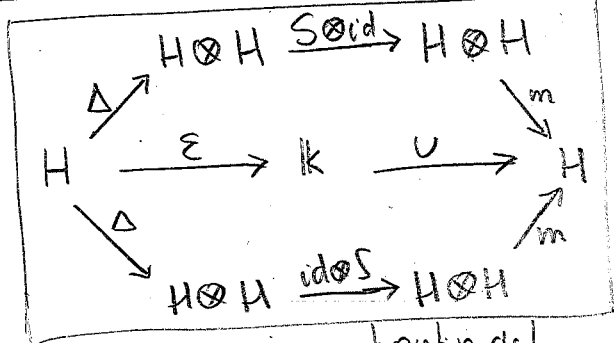 H⊗H S⊗id H⊗H
Δ m
H ε 𝕜 U H
Δ m
H⊗H id⊗S H⊗H